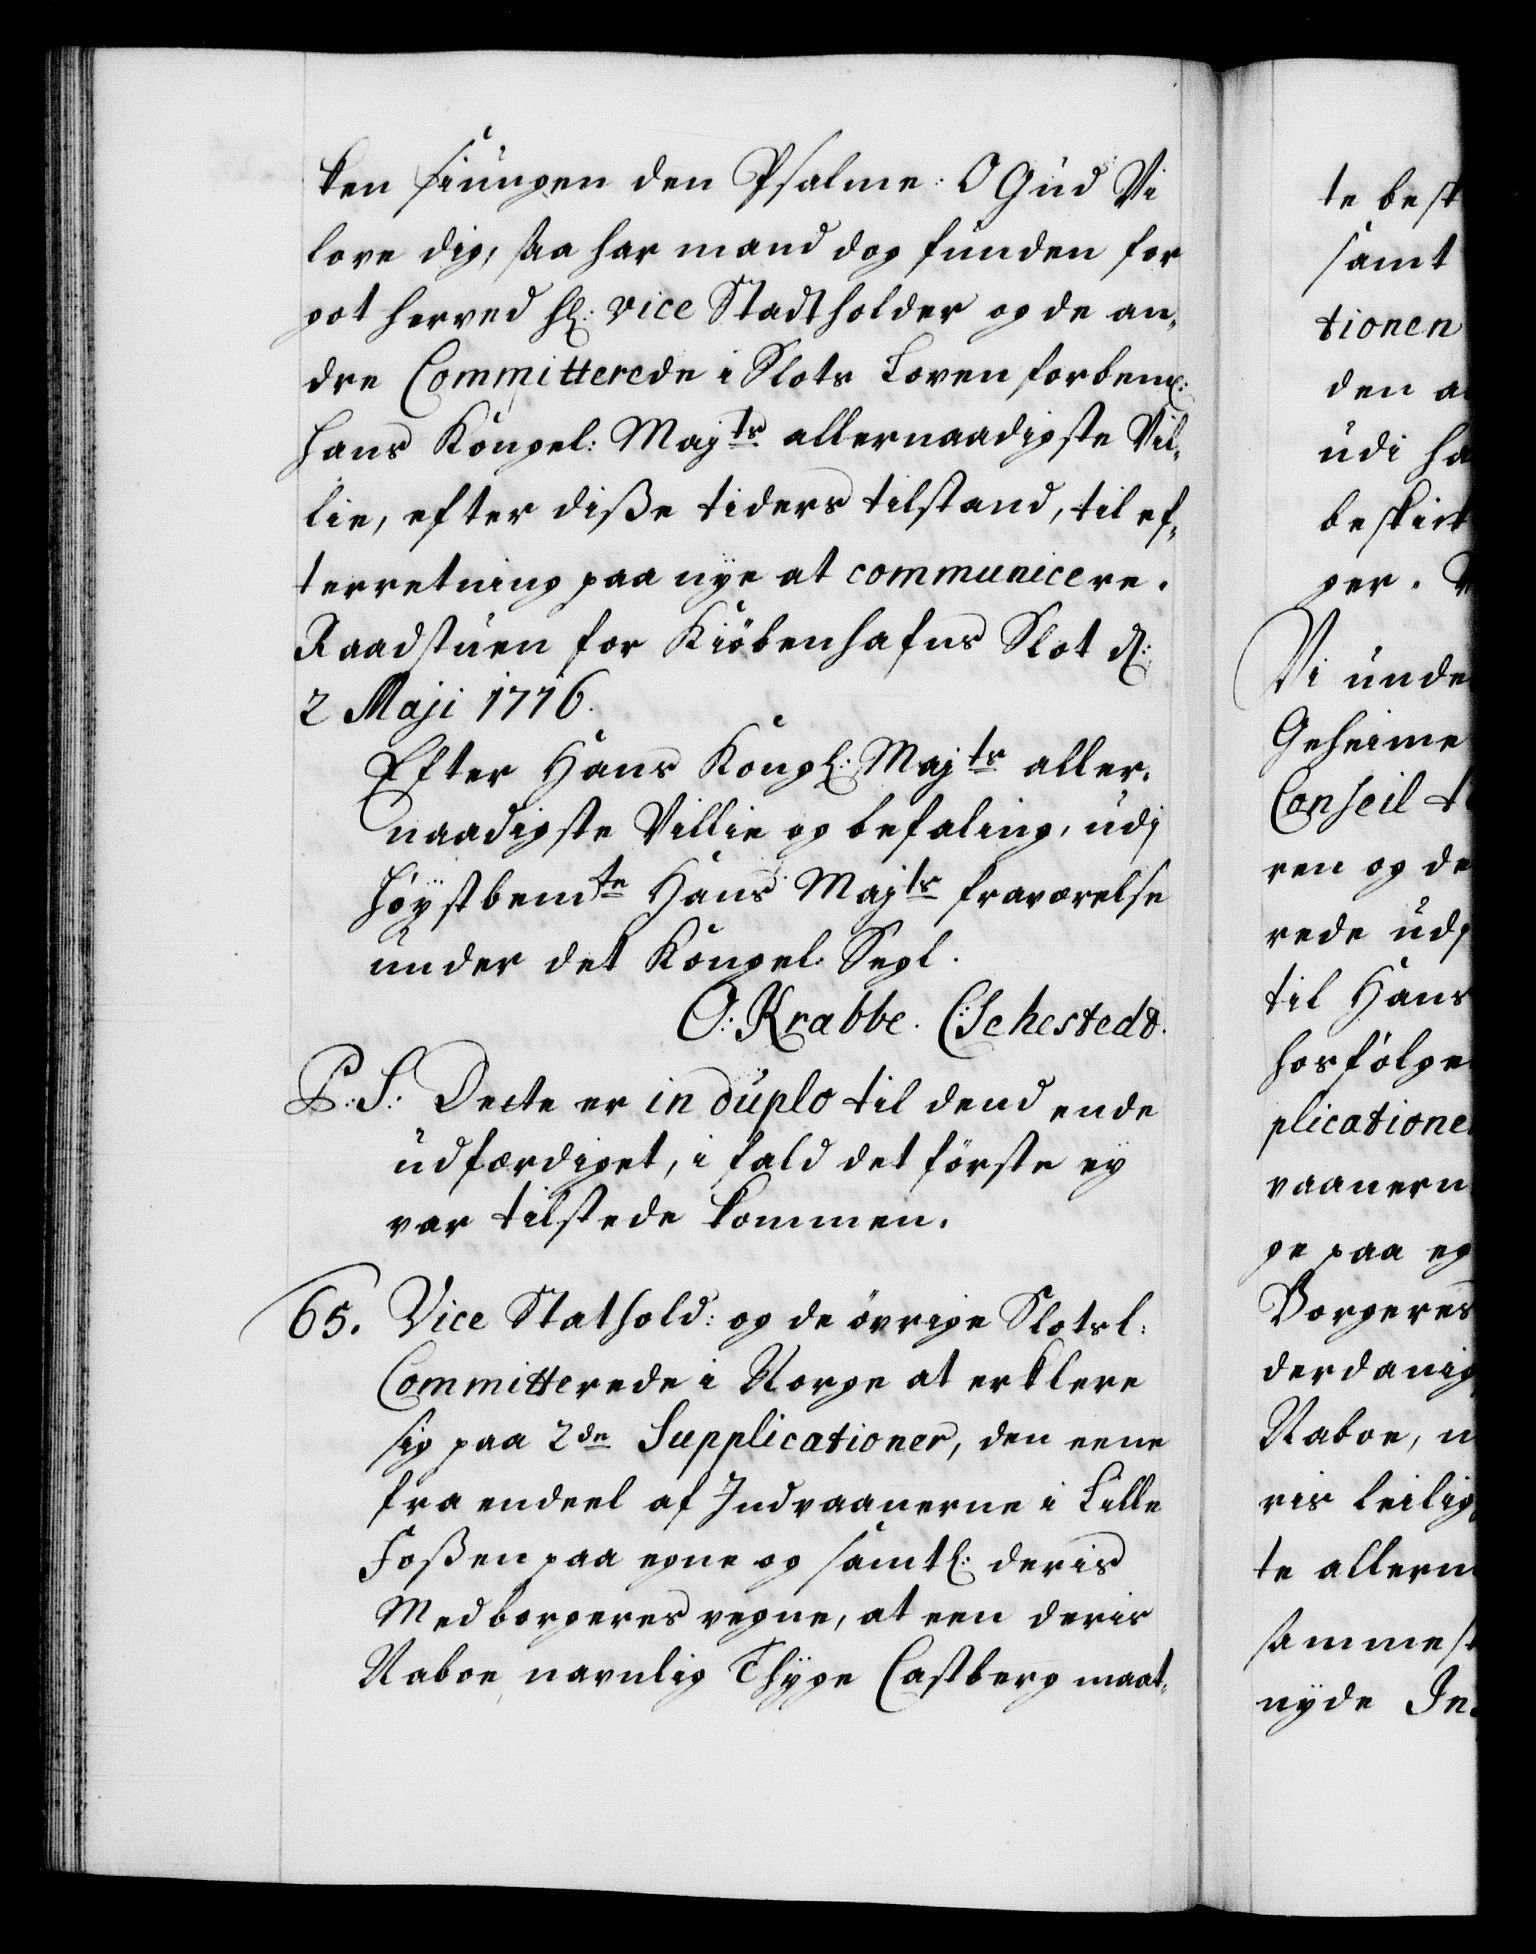 ken siungen den Psalme: O Gud Vi
love dig, saa har mand dog funden for
got herved hl: vice Stadtholder og de an„
dre Committerede i Slots Loven forbeml:
Hans Kongel: Majts allernaadigste Vil„
lie, efter diße tiders tilstand, til ef„
terretning paa nÿe at communicere.
Raadstuen for Kiöbenhafns Slot d:
2 Maji 1716.
Efter Hans Kongl: Majts aller„
naadigste Villie og befaling, udj
Höÿstbemte Hans Majts fraværelse
under det Kongel. Segl.
O: Krabbe. C: Sehestedt.
P: S: Dette er in duplo til dend ende
udfærdiget, i fald det förste eÿ
var tilstede kommen.
65. Vice Stathold: og de övrige Slotsl:
Committerede i Norge at erklere
sig paa 2de Supplicationer, den eene
fra endeel af Indvaanerne i Lille
Foßen paa egne og samtl: deris
Medborgeres vegne, at een deris
Naboe navnlig Thÿge Castberg maat„
te besk
samt
tionen
den a
udi ha
beskik
ger. V
Vi unde
Geheime
Conseil t
ren og de
rede udj
til Hans
hosfölge
plicatione
vaanern
ge paa eg
Borgeres
derdanig
Naboe, n
ris leilig
te allern
sammest
nÿde In